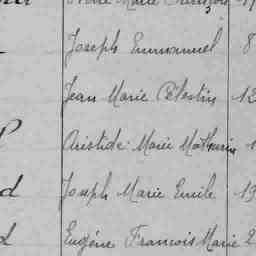 Marie François
Joseph Emmanuel 8
Jean Marie Célestin 12
Aristide Marie Mathurin 1
d Joseph Marie Emile 13
Eugène François Marie 2